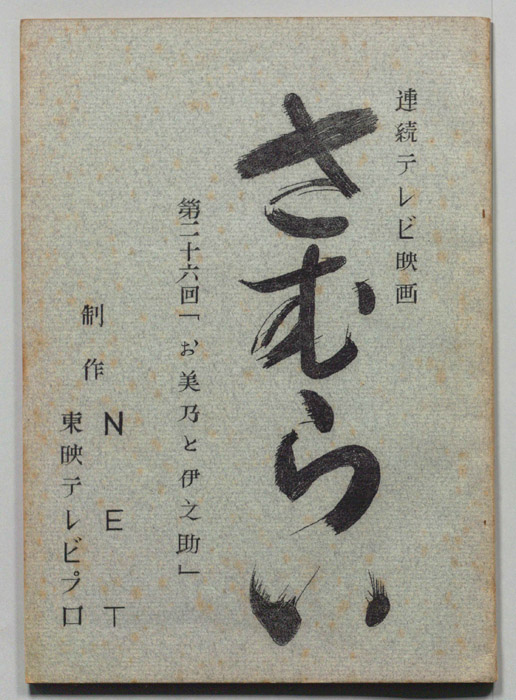 連続テレビ映画
さむらい
第二十六回「お美乃と伊之助」
制作
NET
東映テレビプロ